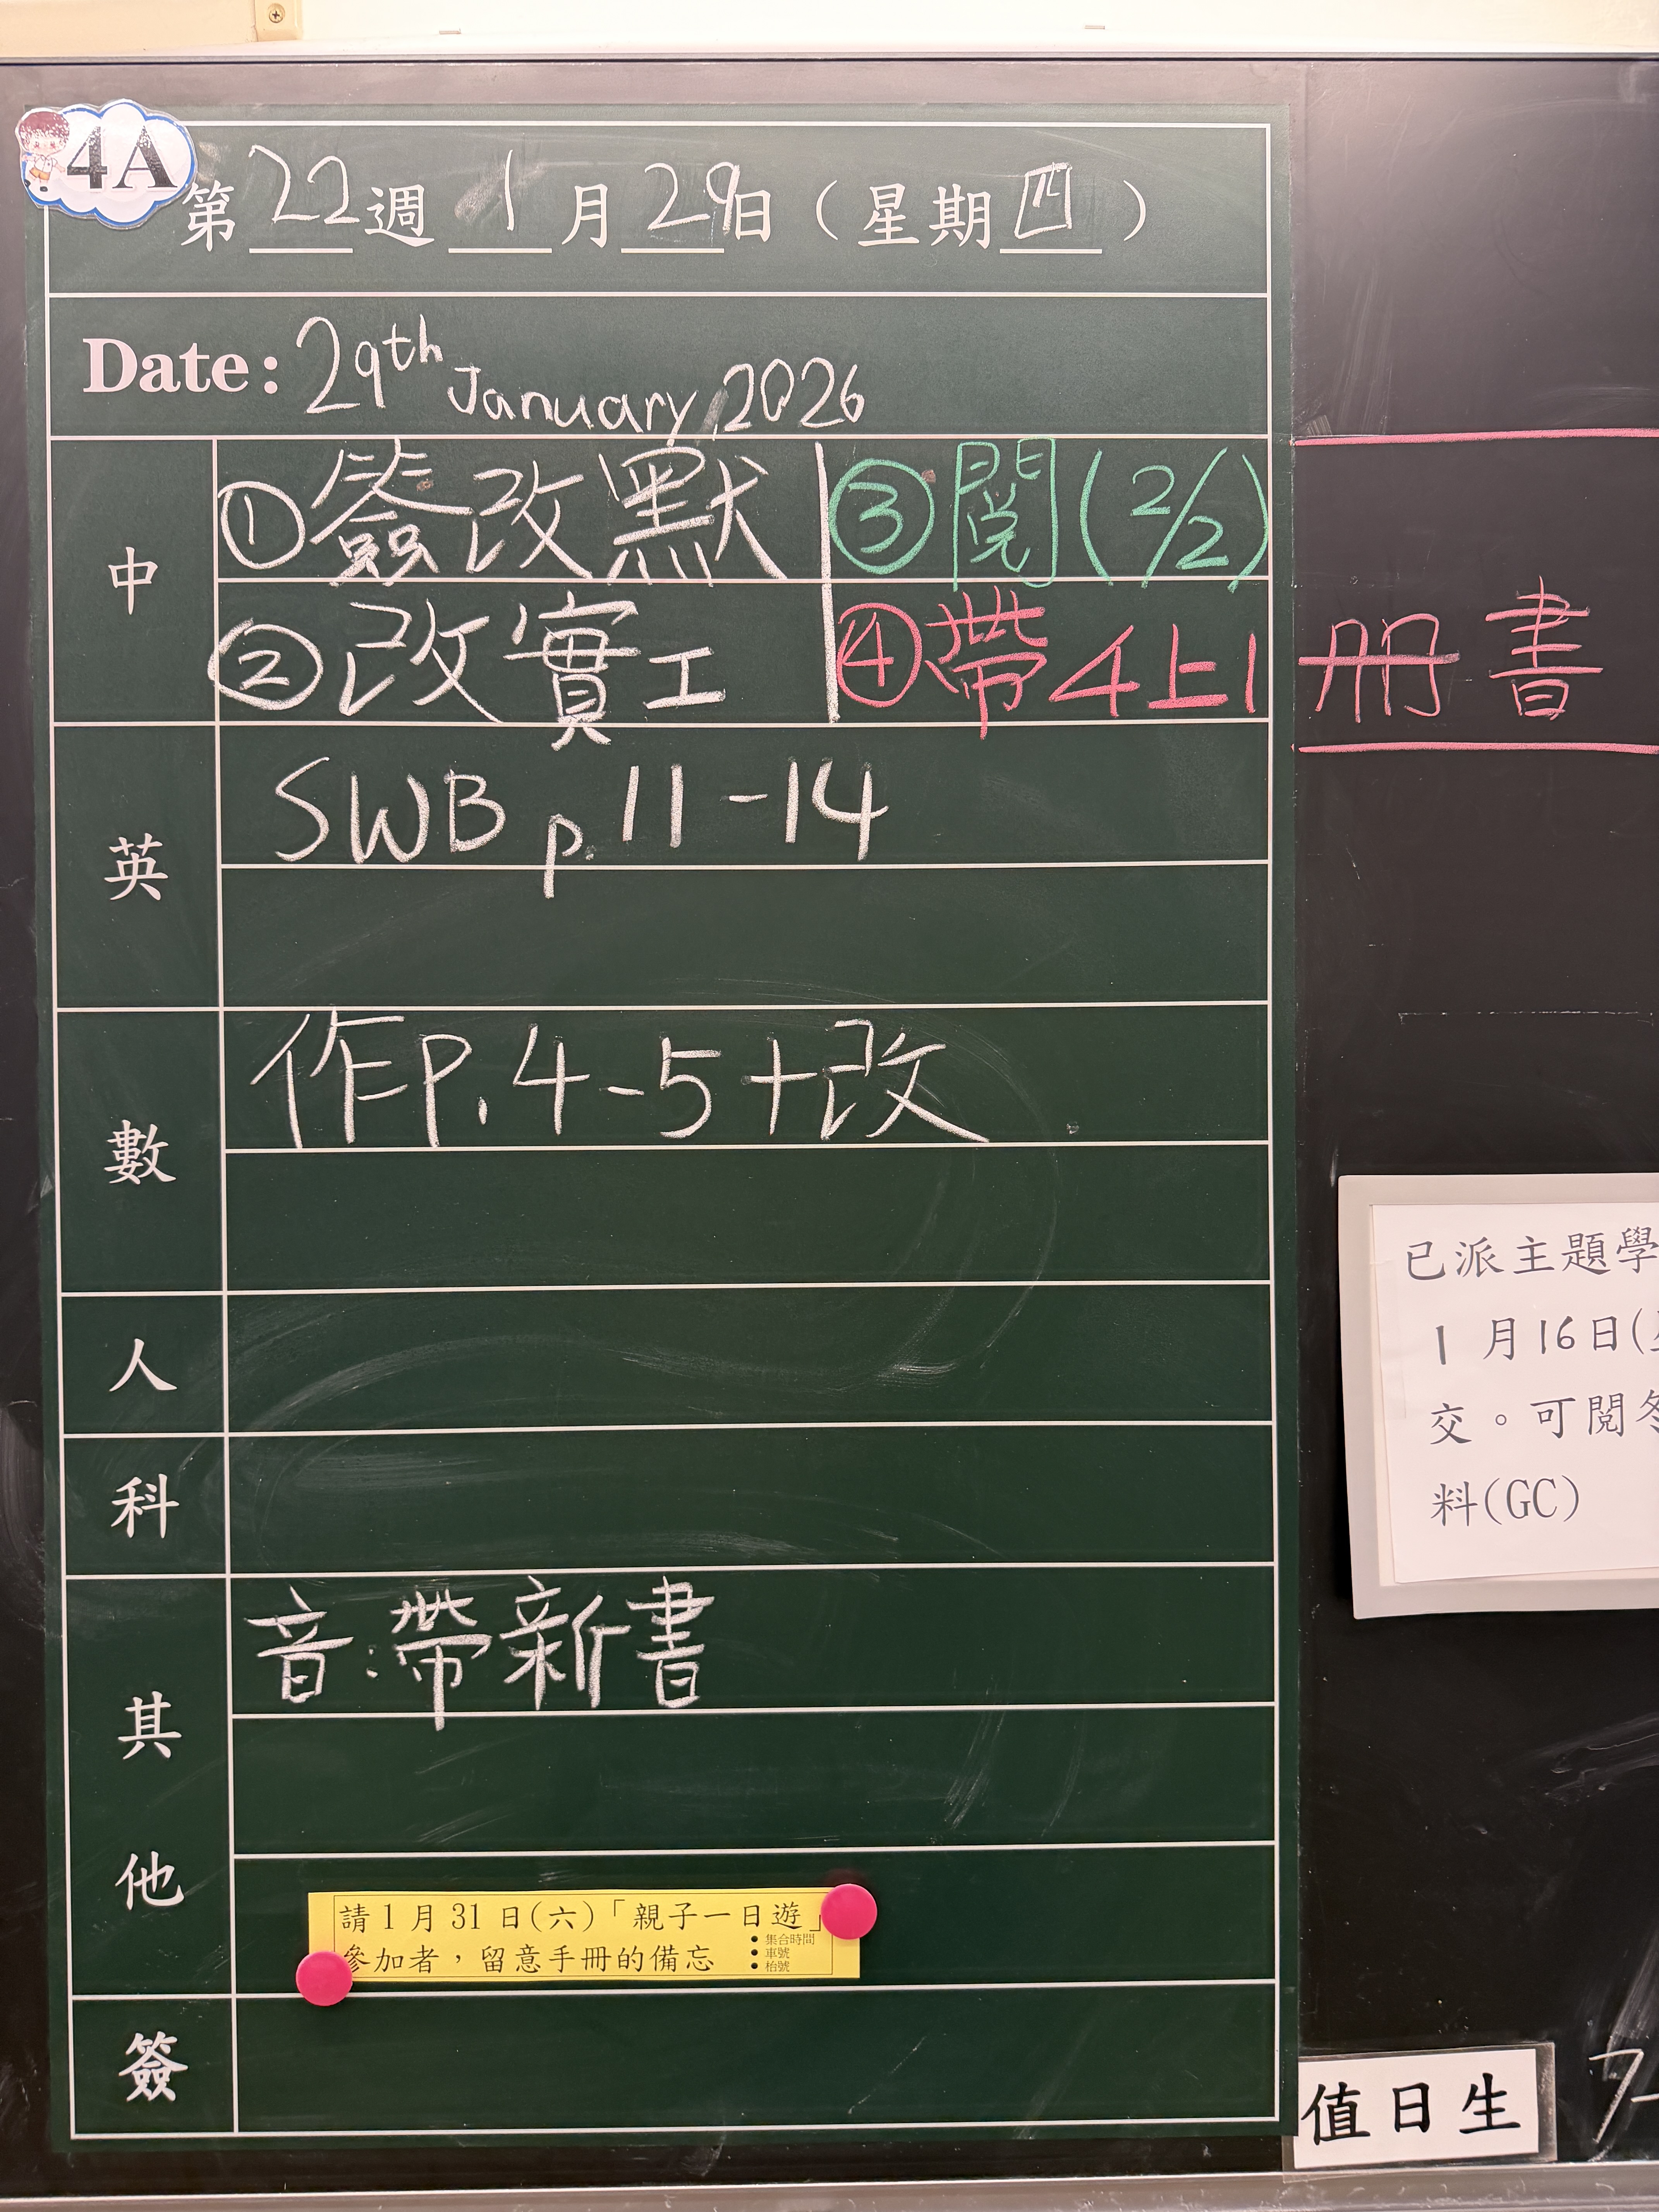 4A
第22週1月29日（星期四）
Date: 29th January, 2026
中
①簽改默 ③閱(2/2)
②改實工 ④帶4上1冊書
英
SWB p.11-14
數
作P.4-5+改
人
科
其他
音:帶新書
請1月31日(六)「親子一日遊」
參加者，留意手冊的備忘
• 集合時間
• 車號
• 枱號
簽
已派主題學
1月16日(
交。可閱冬
料(GC)
值日生